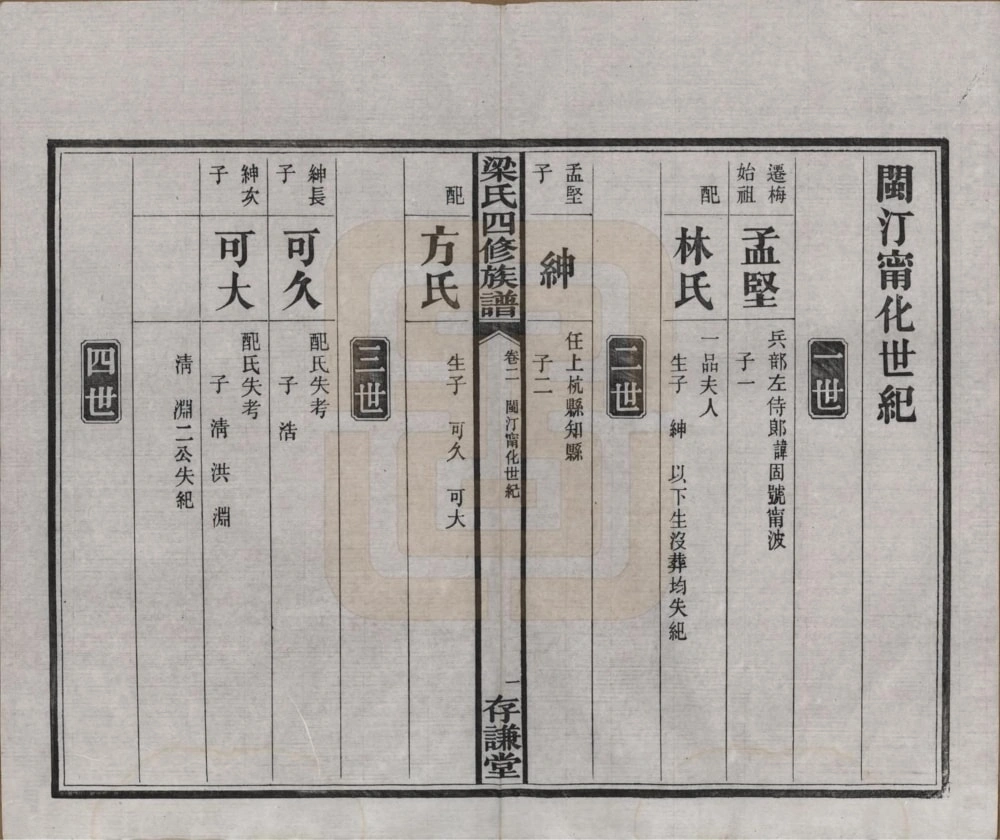 閩汀甯化世紀
一世
遷梅
始祖
孟堅
兵部左侍郞諱固號甯波
子一
配
林氏
一品夫人
生子 紳 以下生沒葬均失紀
二世
孟堅
子
紳
任上杭縣知縣
子二
梁氏四修族譜
卷二 閩汀甯化世紀
一
存謙堂
配
方氏
生子 可久 可大
三世
紳長
子
可久
配氏失考
子 浩
紳次
子
可大
配氏失考
子 淸 洪 淵
淸 淵二公失紀
四世